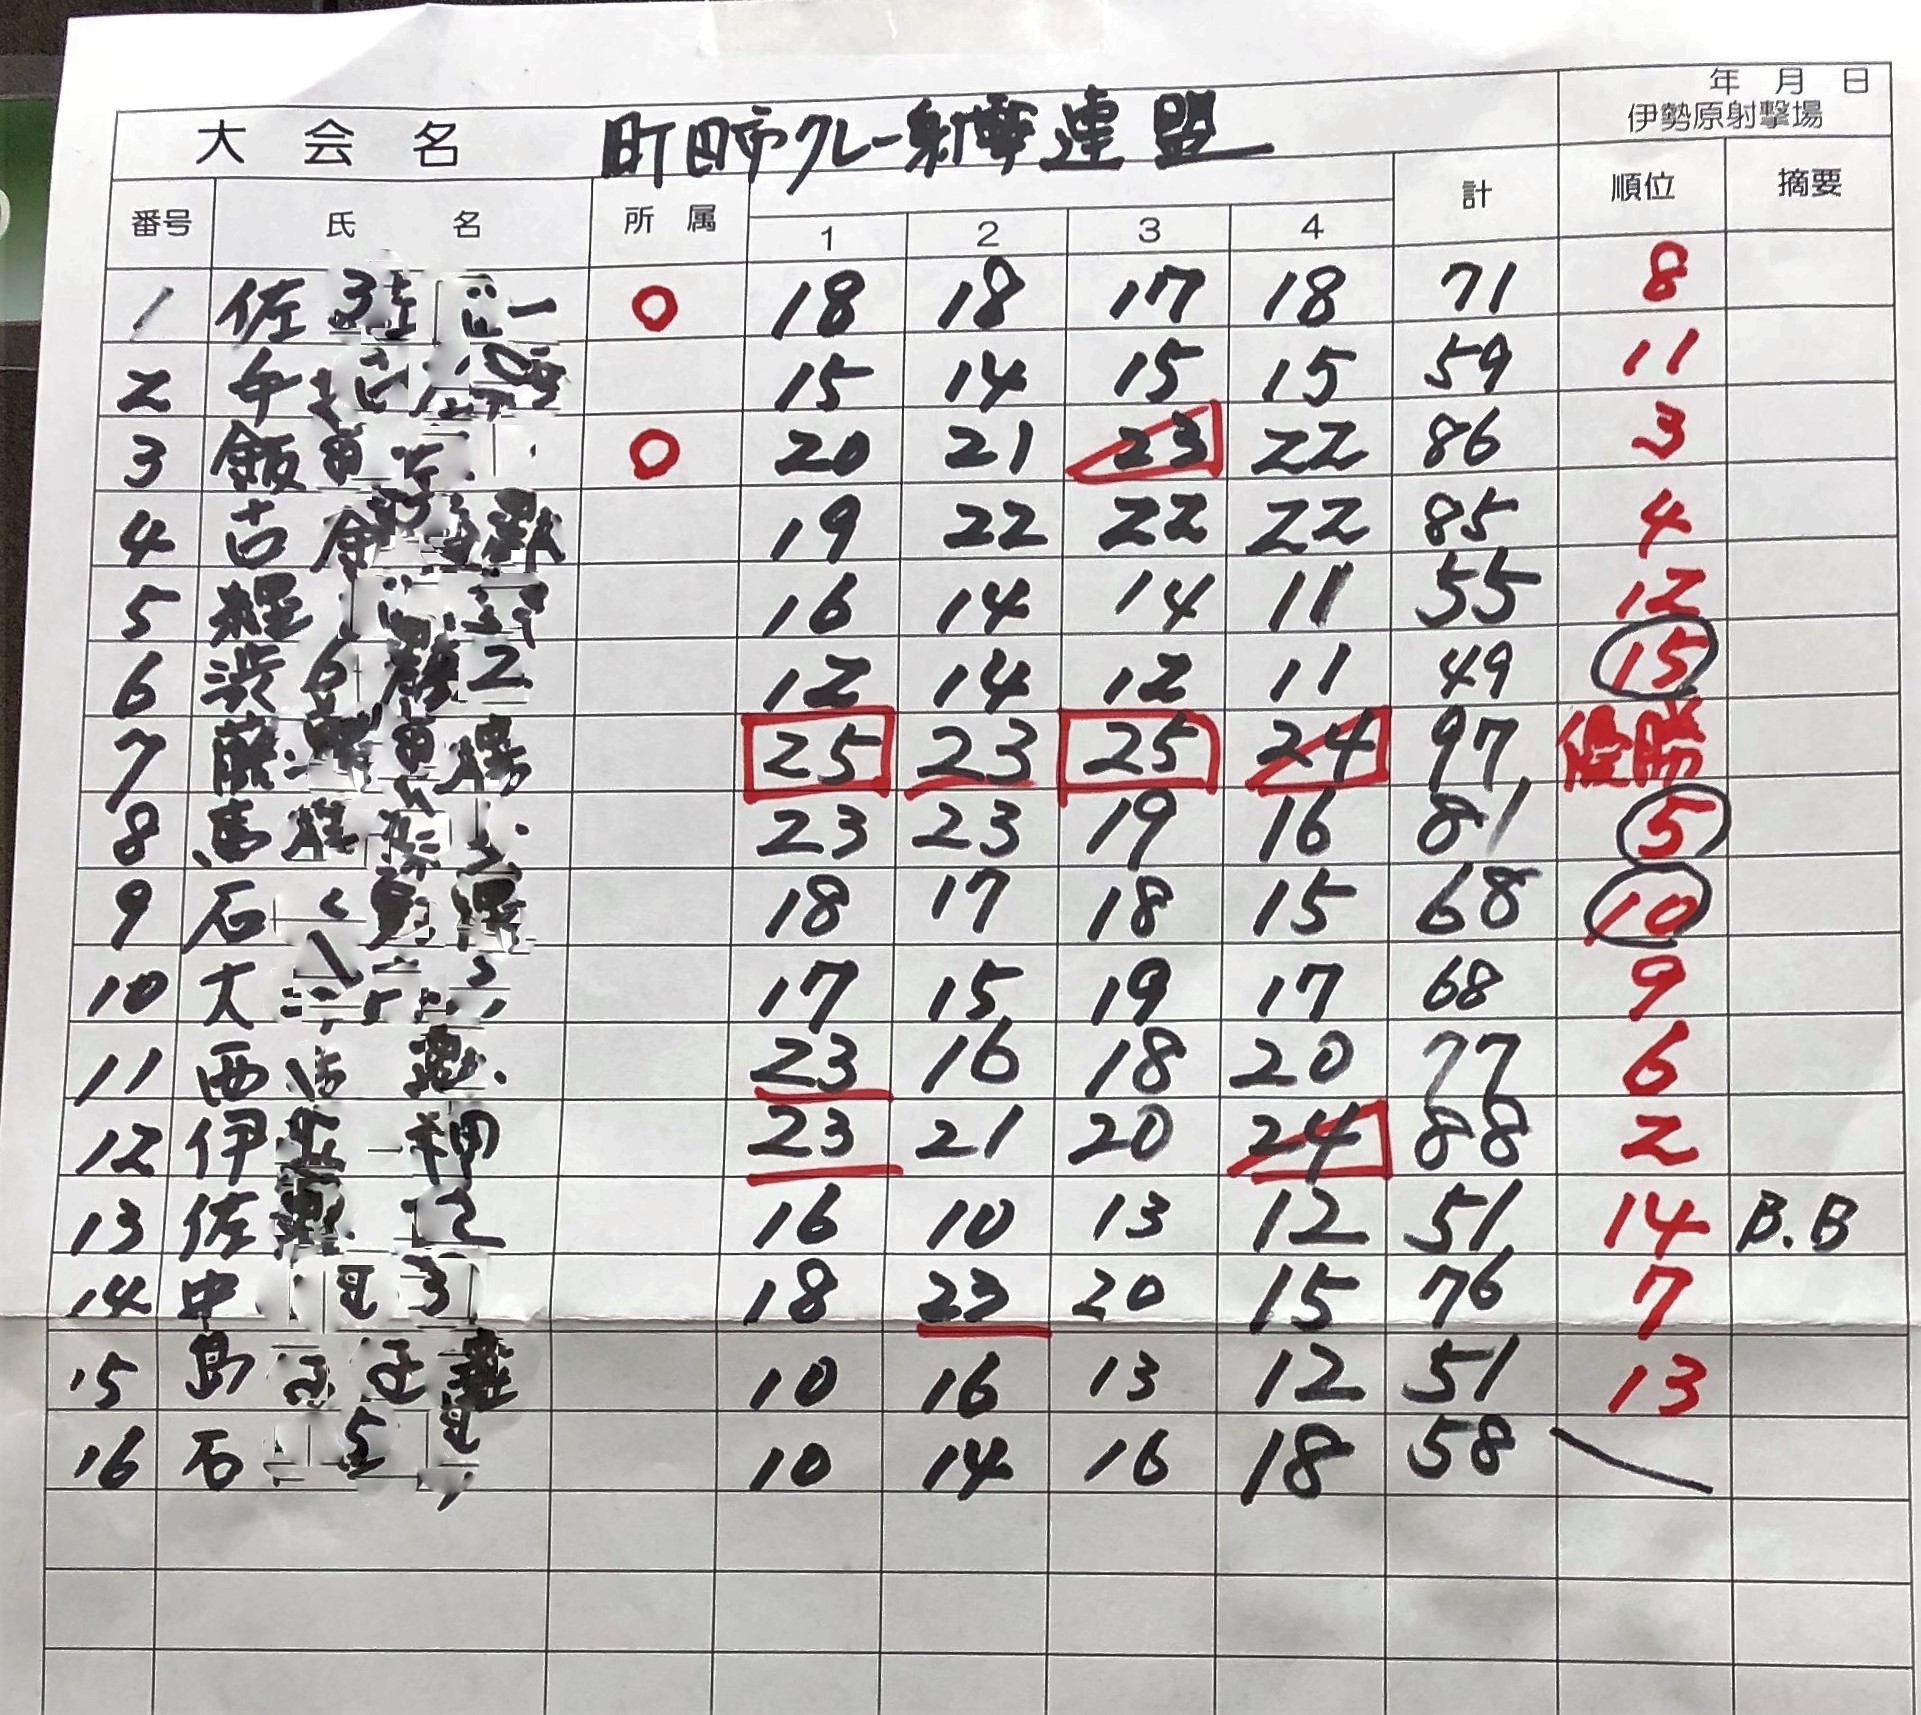 年 月 日
大会名 町田市クレー射撃連盟 伊勢原射撃場
番号 氏名 所属 1 2 3 4 計 順位 摘要
1 佐 一 ○ 18 18 17 18 71 8
2 15 14 15 15 59 11
3 飯 ○ 20 21 23 22 86 3
4 古 19 22 22 22 85 4
5 程 16 14 14 11 55 12
6 渋 12 14 12 11 49 15
7 藤 25 23 25 24 97 優勝
8 馬 23 23 19 16 81 5
9 石 18 17 18 15 68 10
10 大 17 15 19 17 68 9
11 西 23 16 18 20 77 6
12 伊 23 21 20 24 88 2
13 佐 16 10 13 12 51 14 B.B
14 中 18 23 20 15 76 7
15 島 10 16 13 12 51 13
16 石 10 14 16 18 58